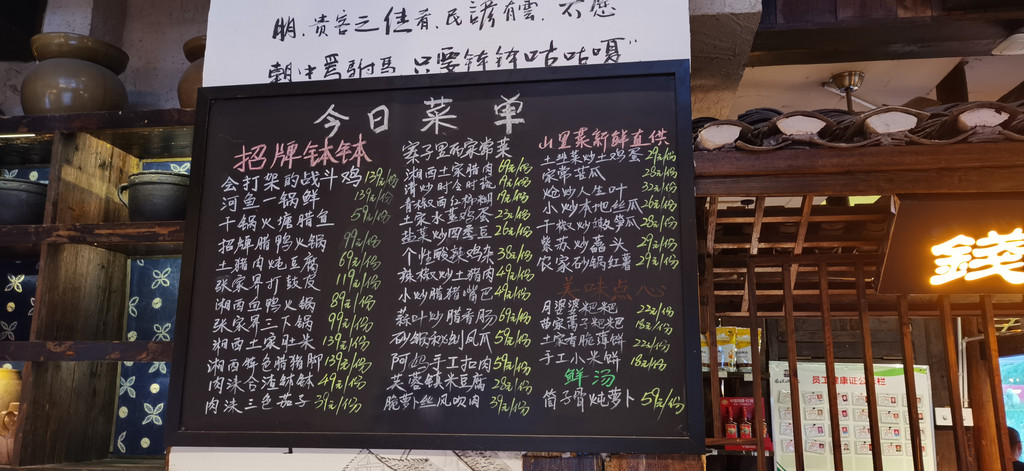 明，贵客之佳肴，民諺有雲，不愿
朝中爲駙馬 只要钵钵咕咕嘎"
今日菜单
招牌钵钵
会打架的战斗鸡 139元/份
河鱼一锅鲜 139元/份
干锅火塘腊鱼 59元/份
招牌腊鸭火锅 99元/份
土猪肉炖豆腐 69元/份
张家界打鼓皮 119元/份
湘西血鸭火锅 89元/份
张家界三下锅 99元/份
湘西土家社米 139元/份
湘西角色腊猪脚 139元/份
肉沫合渣钵钵 49元/份
肉沫三色茄子 39元/份
寨子里农家常菜
湘西土家腊肉 69元/份
清炒时令时蔬 9元/份
青椒西红柿糊 9元/份
土家水蒸鸡蛋 23元/份
盐菜炒四季豆 26元/份
个性酸辣鸡杂 38元/份
辣椒炒土猪肉 49元/份
小炒腊猪嘴巴 49元/份
蒜叶炒腊香肠 69元/份
砂锅 59元/份
阿妈手工扣肉 59元/份
芙蓉镇米豆腐 28元/份
脆萝卜丝风吹肉 39元/份
山里菜新鲜直供
土韭菜炒土鸡蛋 29元/份
家常苦瓜 28元/份
炝炒人生叶 32元/份
小炒本地丝瓜 26元/份
干椒炒嫩笋瓜 28元/份
紫苏炒藠头 29元/份
农家砂锅红薯 29元/份
美味点心
月婆婆粑粑 22元/份
苗家蒿子粑粑 18元/份
土家香脆薄饼 22元/份
手工小米饼 18元/份
鲜汤
筒子骨炖萝卜 59元/份
錢
员工健康证公示栏